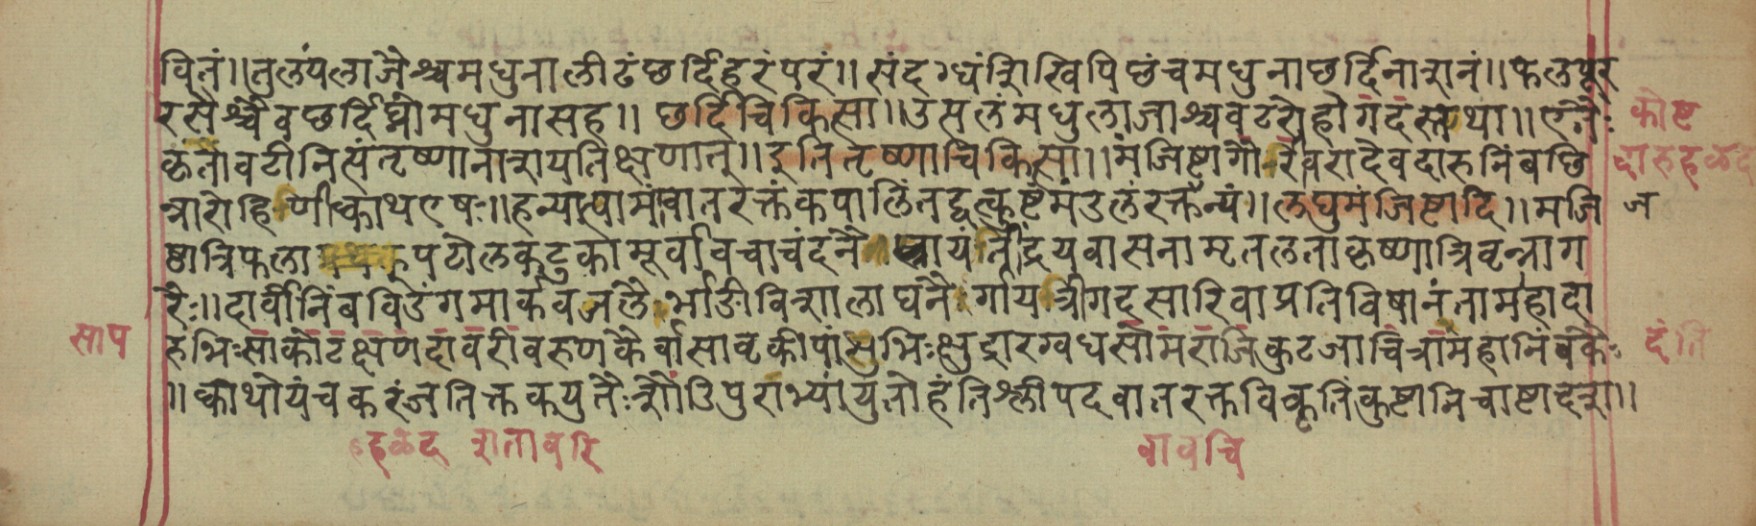 वितं॥तुलयं लाजैश्च मधुनालीढं छर्दिहरं परं॥ संदग्धं शिखिपिछं च मधुना छर्दिनाशनं॥ फलपूर
रसैश्चैव छर्दिघ्नी मधुना सह॥ छर्दिचिकित्सा॥ उत्पलं मधु लाजाश्च वटरोहो गदं स्तथा॥ एतैः कोष्ट
कृता वटी नित्यं तृष्णा नाशयति क्षणात्॥ इति तृष्णाचिकित्सा॥ मंजिष्टा गौरैवरा देवदारु निंब छि दारुहळद
न्नारोहिणी क्वाथ एषः॥ हन्यात्पामां वातरक्तं कपालिं तद्वत्कुष्टं मंडलं रक्तजन्यं॥ लघुमंजिष्टादि॥ मजि
ष्ठा त्रिफला पटोल कटुका मूर्वा वचा चंदनै त्रायंतींद्रयवासनामृतलता कृष्णा त्रिवृन्नाग
रैः॥ दार्वी निंब विडंग मार्कव जलै भांडी विशाला घनै र्गायत्री गद सारिवा प्रतिविषानंता महादा
साप रुभिः साकोटक्षणदा वरी वरुणकै र्वासा वृकी पांशुभिः क्षुद्रारग्वध सोमराजि कुटजा चित्रा महानिंबकैः दंति
॥ क्वाथोयं च करंज तिक्तकयुतैः शौंडि पुराभ्यां युतो हंति श्लीपद वातरक्त विकृतिं कुष्टानि चाष्टादश॥
हळद शतावरि बावचि